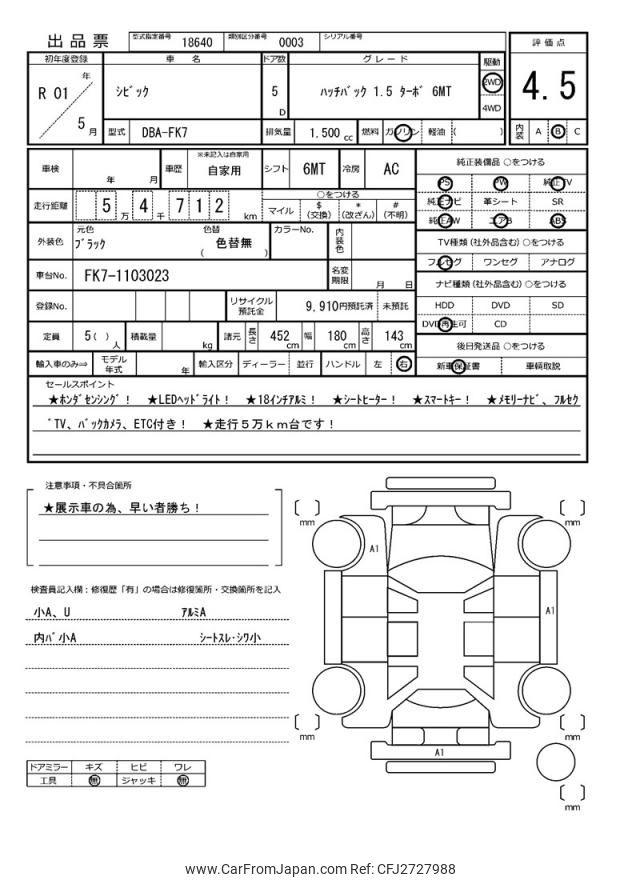 出品票 型式指定番号 18640 類別区分番号 0003 シリアル番号
評価点
初年度登録 車名 ドア数 グレード 駆動
R 01 年 シビック 5 D ハッチバック 1.5 ターボ 6MT 2WD 4WD
4.5
5 月 型式 DBA-FK7 排気量 1.500 cc 燃料 ガソリン 軽油 ( )
内装 A B C
車検 年 月 車歴 ※未記入は自家用 自家用 シフト 6MT 冷房 AC
純正装備品 ○をつける
PS PW 純正TV
走行距離 5 万 4 千 7 1 2 km ○をつける
マイル $(交換) *(改ざん) #(不明)
純正ナビ 革シート SR
純正AW エアB ABS
外装色 元色 ブラック 色替 色替無 ( ) カラーNo. 内装色
TV種類 (社外品含む) ○をつける
フルセグ ワンセグ アナログ
車台No. FK7-1103023 名変期限 月 日
ナビ種類 (社外品含む) ○をつける
登録No. リサイクル預託金 9,910円預託済 未預託
HDD DVD SD
DVD再生可 CD
定員 5 ( ) 人 積載量 kg 諸元 長さ 452 cm 幅 180 cm 高さ 143 cm
後日発送品 ○をつける
輸入車のみ⇒ モデル年式 年 輸入区分 ディーラー 並行 ハンドル 左 右
新車保証書 車輌取説
セールスポイント
★ホンダセンシング! ★LEDヘッドライト! ★18インチアルミ! ★シートヒーター! ★スマートキー! ★メモリーナビ、フルセク
゛TV、バックカメラ、ETC付き! ★走行5万km台です!
注意事項・不具合箇所
★展示車の為、早い者勝ち!
検査員記入欄:修復歴「有」の場合は修復箇所・交換箇所を記入
小A、U アルミA
内バ小A シートスレ・シワ小
ドアミラー キズ ヒビ ワレ
工具 無 ジャッキ 無
mm
mm
A1
A1
mm
mm
A1
mm
www.CarFromJapan.com Ref: CFJ2727988